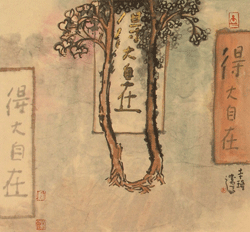 得大自在
大自在
得大自在